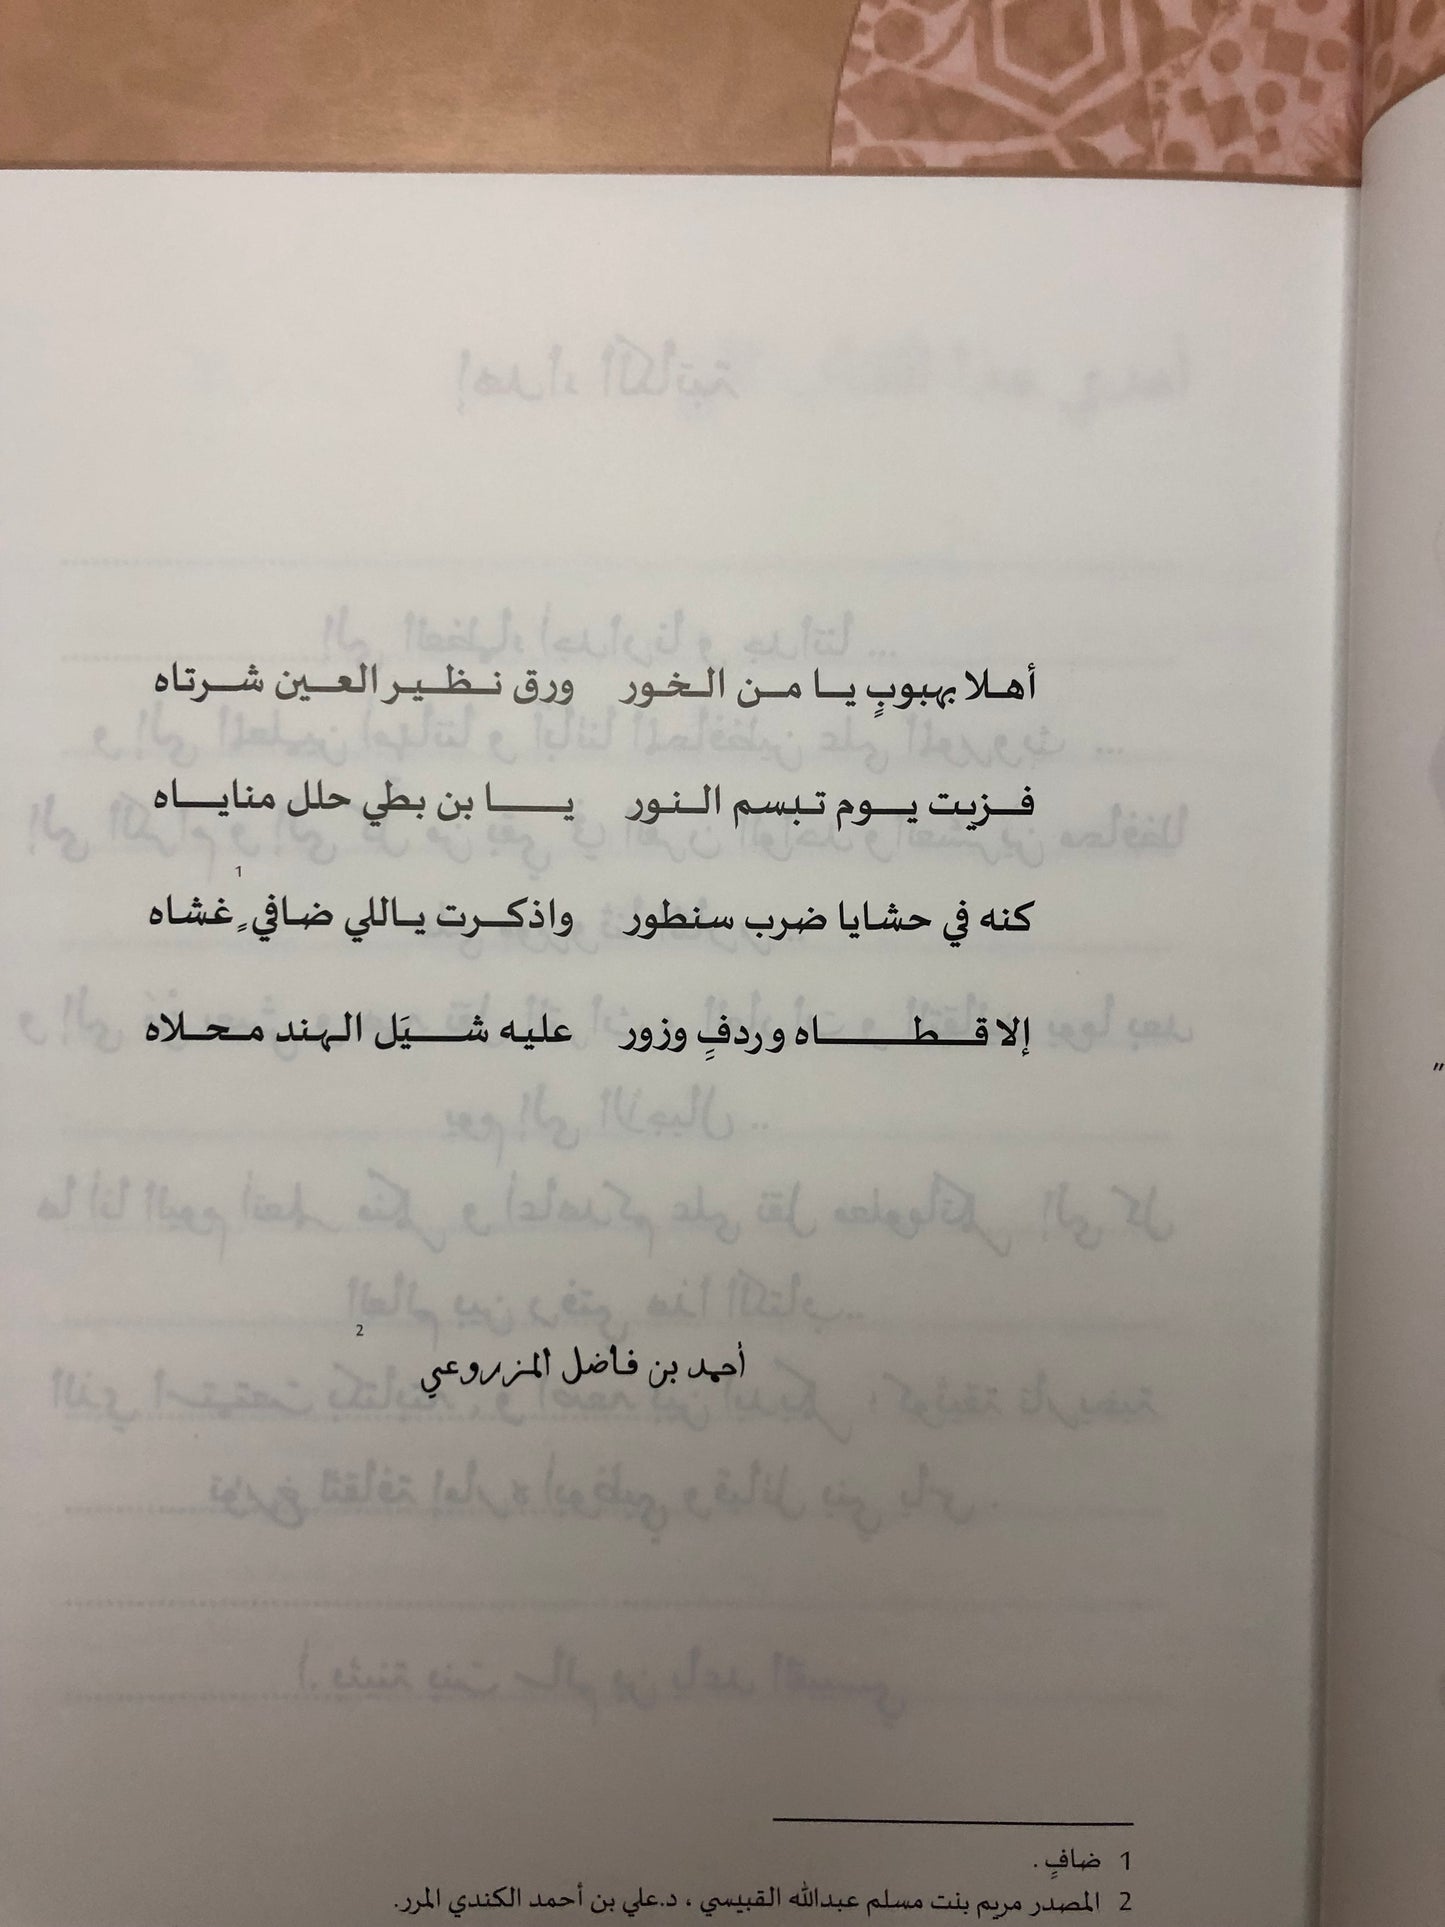 أهلا بهبوبٍ يا من الخور ورق نظير العين شرتاه
فزيت يوم تبسم النور يا بن بطي حلل منايـاه
كنه في حشايا ضرب سنطور واذكرت ياللي ضافيٍ غشاه 1
إلا قطاه وردفٍ وزور عليه شيَل الهند محلاه
أحمد بن فاضل المزروعي 2
1 ضافٍ .
2 المصدر مريم بنت مسلم عبدالله القبيسي ، د.علي بن أحمد الكندي المرر.